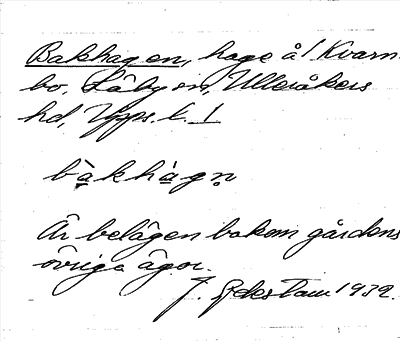 Bakhagen, hage å 1 Kvarn-
bo, Läby sn, Ulleråkers
hd, Upps. l. 1
bàkhàgn
Är belägen bakom gårdens
övriga ägor.
J. 1932.